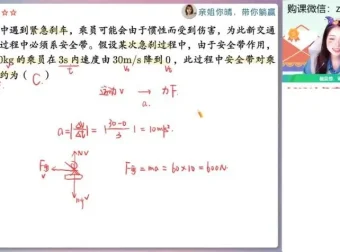 ☆☆
亲姐你晴,带你躺赢
购课微信:z
中遇到紧急刹车,乘员可能会由于惯性而受到伤害,为此新交通
过程中必须系安全带。假设某次急刹过程中,由于安全带作用,
0kg的乘员在3s内速度由30m/s降到0,此过程中安全带对乘
约为( C. )
t V₀ V₁
运动 V → 力 F.
a.
a=|ΔV/Δt|=|30-0/3|=10m/s².
N
F = ma = 60×10 = 600N.
F
mg